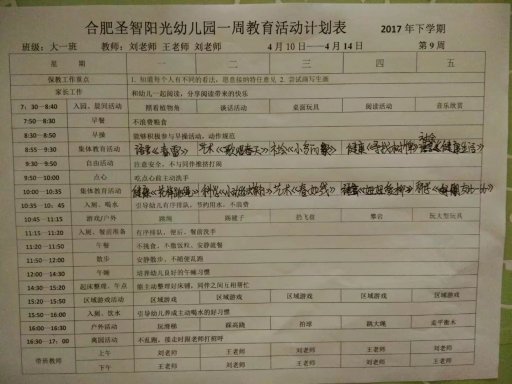 合肥圣智阳光幼儿园一周教育活动计划表 2017 年下学期
班级：大一班 教师：刘老师 王老师 刘老师 4 月 10 日——4 月 14 日 第 9 周
星 期 一 二 三 四 五
保教工作重点 1. 知道每个人有不同的看法，愿意接纳特任意见 2. 尝试画写生画
家长工作 和幼儿一起阅读，分享阅读带来的快乐
7：30—8:40 入园、晨间活动 照看植物角 谈话活动 桌面玩具 阅读活动 音乐欣赏
7:50—8:30 早餐 不浪费粮食
8:30—8:50 早操 能够积极参与早操活动，动作规范
8:55—9:30 集体教育活动 语言《春雷》 艺术 社会 健康 社会
9:30—9:50 自由活动 注意安全，不与同伴推挤打闹
9:50—10:00 点心 吃点心前主动洗手
10:00—10:35 集体教育活动 健康 科学 艺术 语言 科学
10:35—10：45 入厕、喝水 引导幼儿有序排队，节约用水，不浪费
10:45—11:15 游戏/户外 跳绳 踢毽子 扔飞盘 攀岩 玩大型玩具
11:15—11:20 入厕、餐前准备 有序排队，便后、餐前洗手
11:20—11:50 午餐 不挑食，不撒饭粒，安静就餐
11:50—12:00 散步 安静散步，不随便乱跑
12:00—14:30 午睡 培养幼儿良好的午睡习惯
14:30—15:20 起床整理、午点 能主动整理好床铺，同伴之间互相帮忙
15:20—15:50 区域游戏活动 区域游戏 区域游戏 区域游戏 区域游戏 区域游戏
15:50—16:00 入厕、饮水 引导幼儿养成主动喝水的好习惯
16:00—16:30 户外活动 玩滑梯 踩高跷 拍球 跳大绳 走平衡木
16:30—17：00 离园活动 不乱跑，接走时跟老师打招呼
带班教师 上午 刘老师 王老师 刘老师 王老师 刘老师
下午 王老师 刘老师 王老师 刘老师 王老师